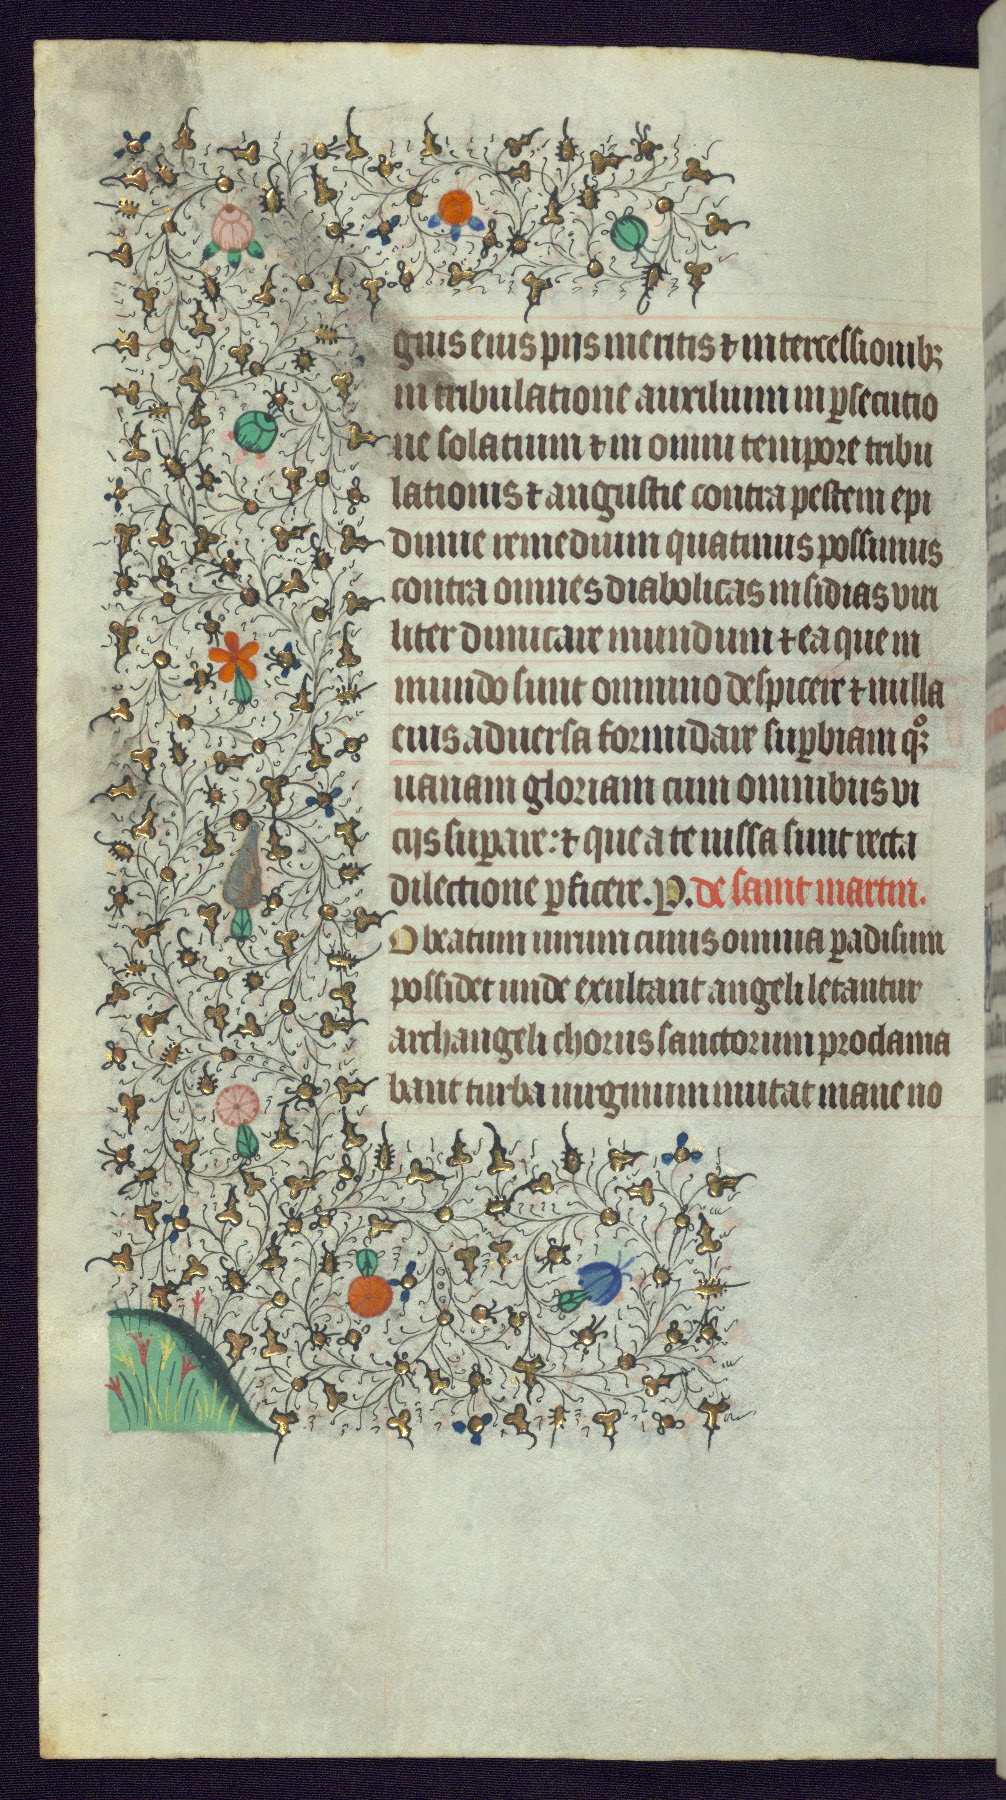 gnis eius piis meritis ⁊ intercessionibꝫ
in tribulatione auxilium in ꝑsecutio
ne solatium ⁊ in omni tempore tribu
lationis ⁊ angustie contra pestem epi
dimie remedium quatinus possimus
contra omnes diabolicas insidias viri
liter dimicare mundum ⁊ ea que in
mundo sunt omnino despicere ⁊ nulla
eius aduersa formidare suꝑbiam qͦꝫ
uanam gloriam cum omnibus vi
cijs suꝑare: ⁊ que a te iussa sunt recta
dilectione ꝑficere. P. de saint martin.
O beatum uirum cuius omnia ꝑadisum
possidet unde exultant angeli letantur
archangeli chorus sanctorum proclama
bant turba uirginum inuitat mane no